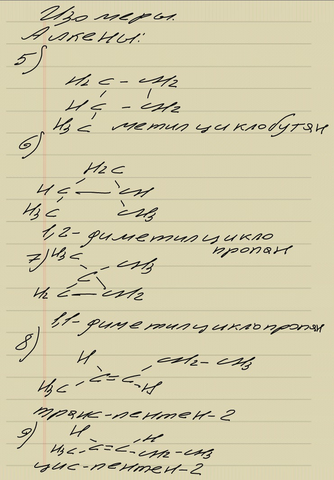 Изомеры.
Алкены:
5)
H₂C - CH₂
HC - CH₂
H₃C метилциклобутан
6)
H₂C
HC — CH
H₃C CH₃
1,2-диметилцикло
пропан
7) H₃C
C - CH₃
H₂C — CH₂
1,1-диметилциклопропан
8)
H CH₂-CH₃
H₃C C=C H
транс-пентен-2
9) H H
H₃C C=C CH₂-CH₃
цис-пентен-2